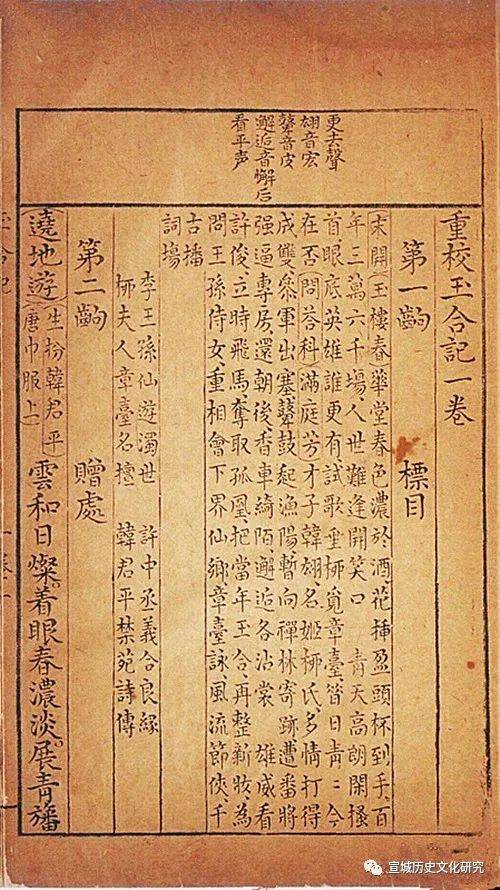 更去聲
翃音宏
鼙音皮
邂逅音懈后
看平声
重校玉合記一卷
第一齣 標目
末開玉樓春華堂春色濃於酒花揷盈頭杯到手百
年三萬六千場人世難逢開笑口 青天高朗閑搔
首眼底英雄誰更有試歌垂柳覓章臺昔日青二今
在否問答科滿庭芳才子韓翃名姬柳氏多情打得
成雙叅軍出塞鼙鼓起漁陽暫向禪林寄跡遭番將
强逼專房還朝後香車綺陌邂逅各沾裳 雄威看
許俊立時飛馬奪取孤凰把當年玉合再整新妝為
問王孫侍女重相會下界仙鄉章臺詠風流節俠千
古播
詞塲
李王孫仙遊濁世 許中丞義合良緣
柳夫人章臺名擅 韓君平禁苑詩傳
第二齣 贈處
遶地遊生扮韓君平唐巾服上雲和日燦着眼春濃淡展青旛
玉合記
宣城历史文化研究